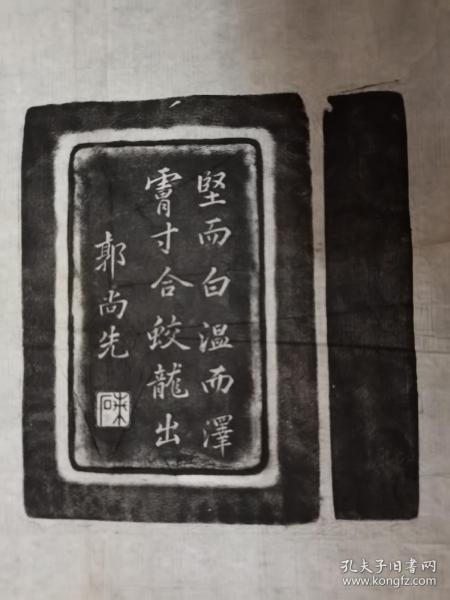 堅而白温而澤
膚寸合蛟龍出
郭尚先
孔夫子旧书网
www.kongfz.com